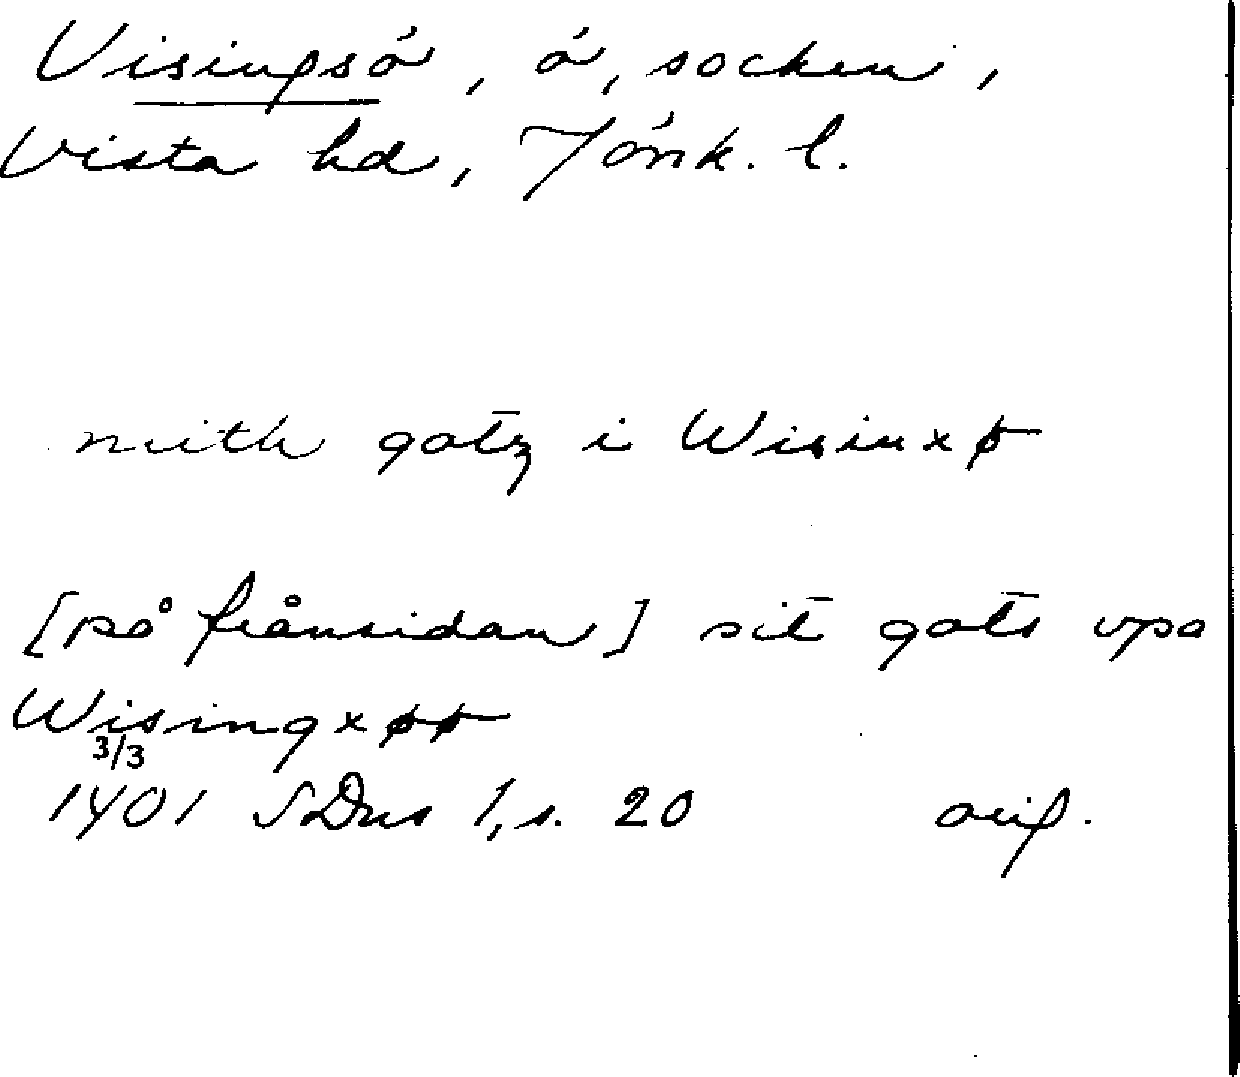 Visingsö, ö, socken,
Vista hd, Jönk. l.
mith gotz i Wisinxø
[på frånsidan] sit gots vpa
Wisingxøø
3/3
1401 SDns 1, s. 20 orig.